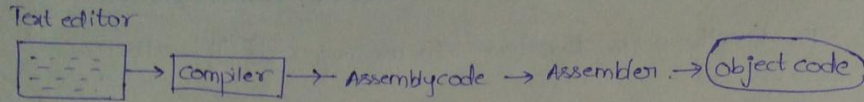 Text editor
compiler → Assemblycode → Assembler → object code